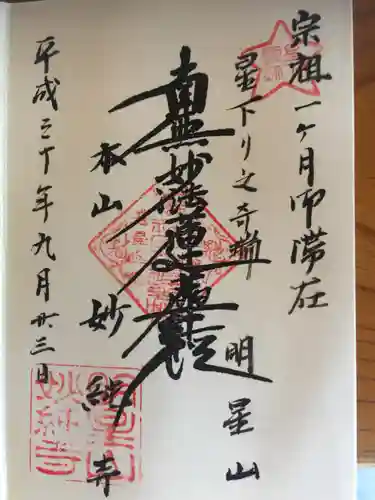 宗祖一ヶ月御滞在
星下り之奇瑞
明星山
南無妙法蓮華経
本山
妙純寺
平成三十年九月廿三日
明星山
妙純寺